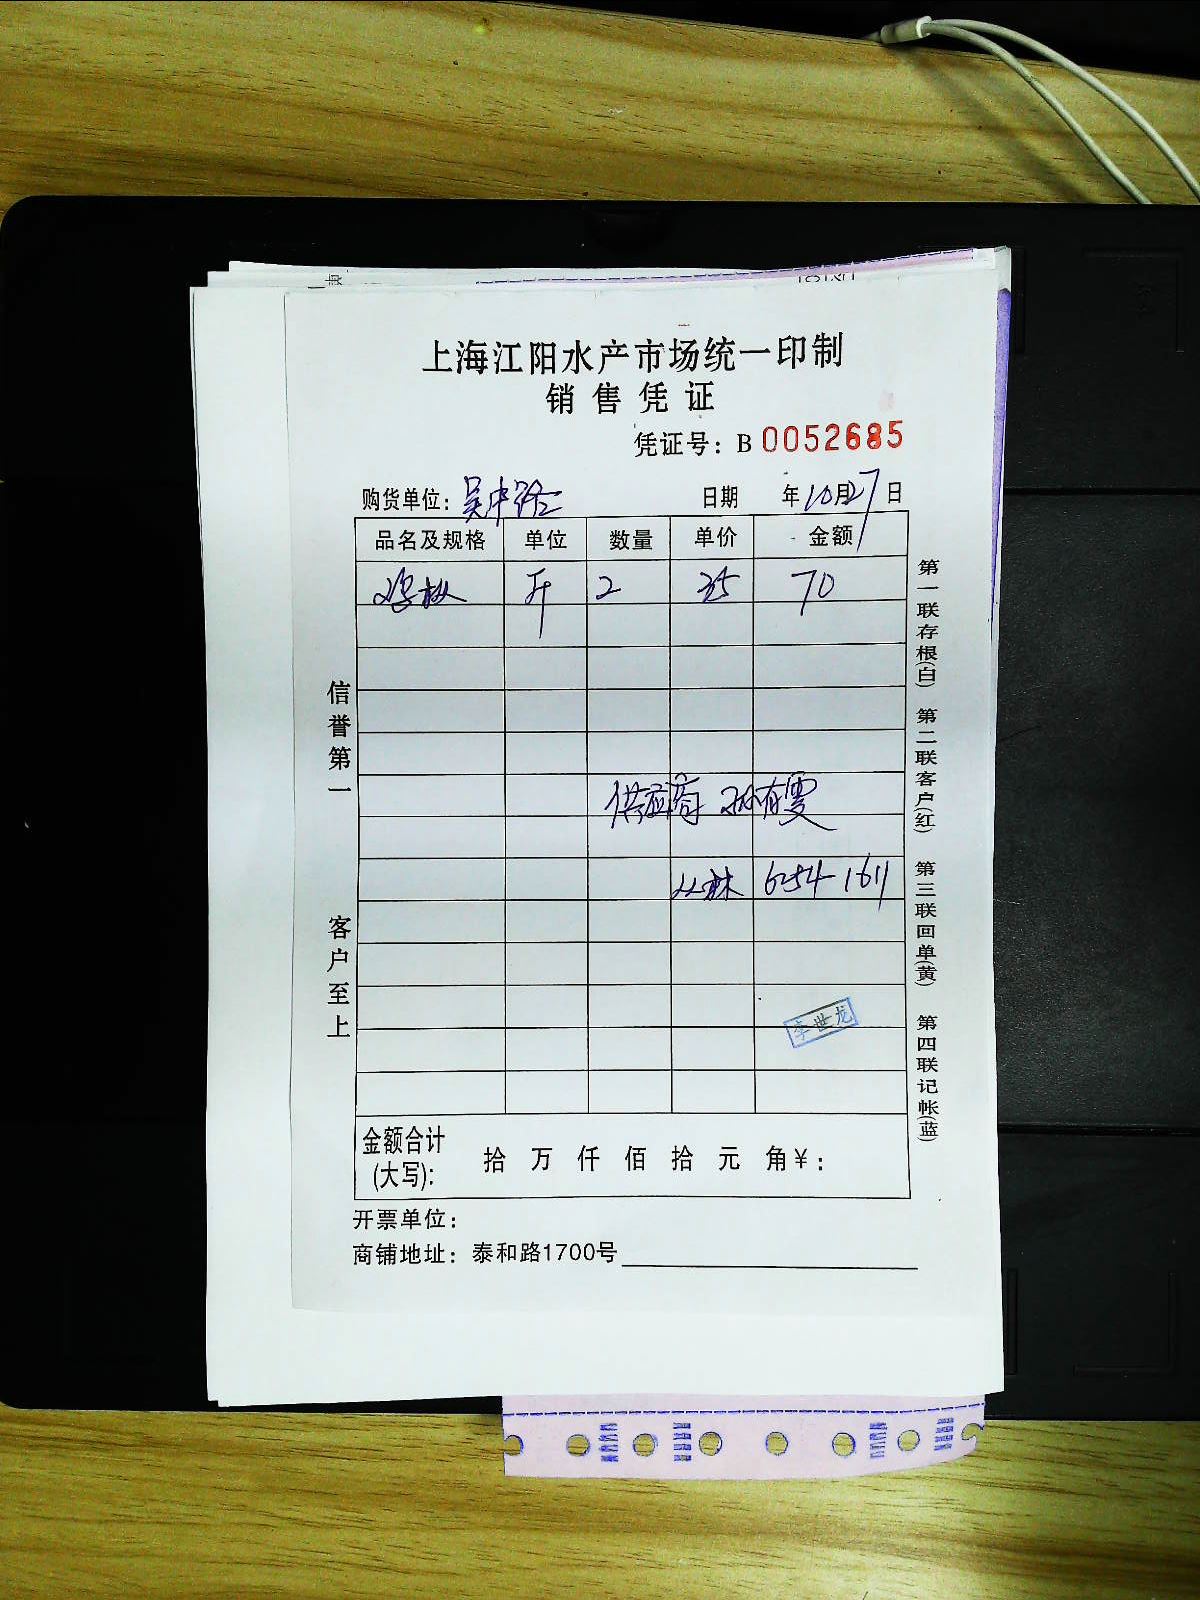 上海江阳水产市场统一印制
销售凭证
凭证号：B 0052685
购货单位：吴中路
日期 年10月27日
品名及规格 单位 数量 单价 金额
斤 2 35 70
供应商 孙有雯
6254 1611
李世龙
金额合计(大写)： 拾 万 仟 佰 拾 元 角 ¥：
开票单位：
商铺地址：泰和路1700号
信誉第一 客户至上
第一联存根(白) 第二联客户(红) 第三联回单(黄) 第四联记帐(蓝)